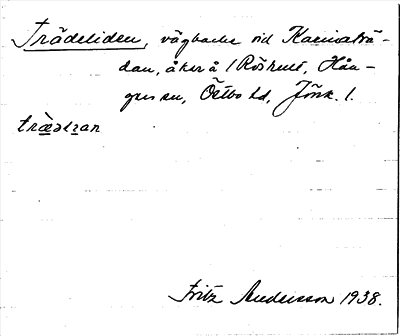 Trädeliden, vägbacke vid Karinaträ-
dan, åker å 1 Röshult, Hån-
gers sn, Östbo hd, Jönk. l.
Fritz Andersson 1938.